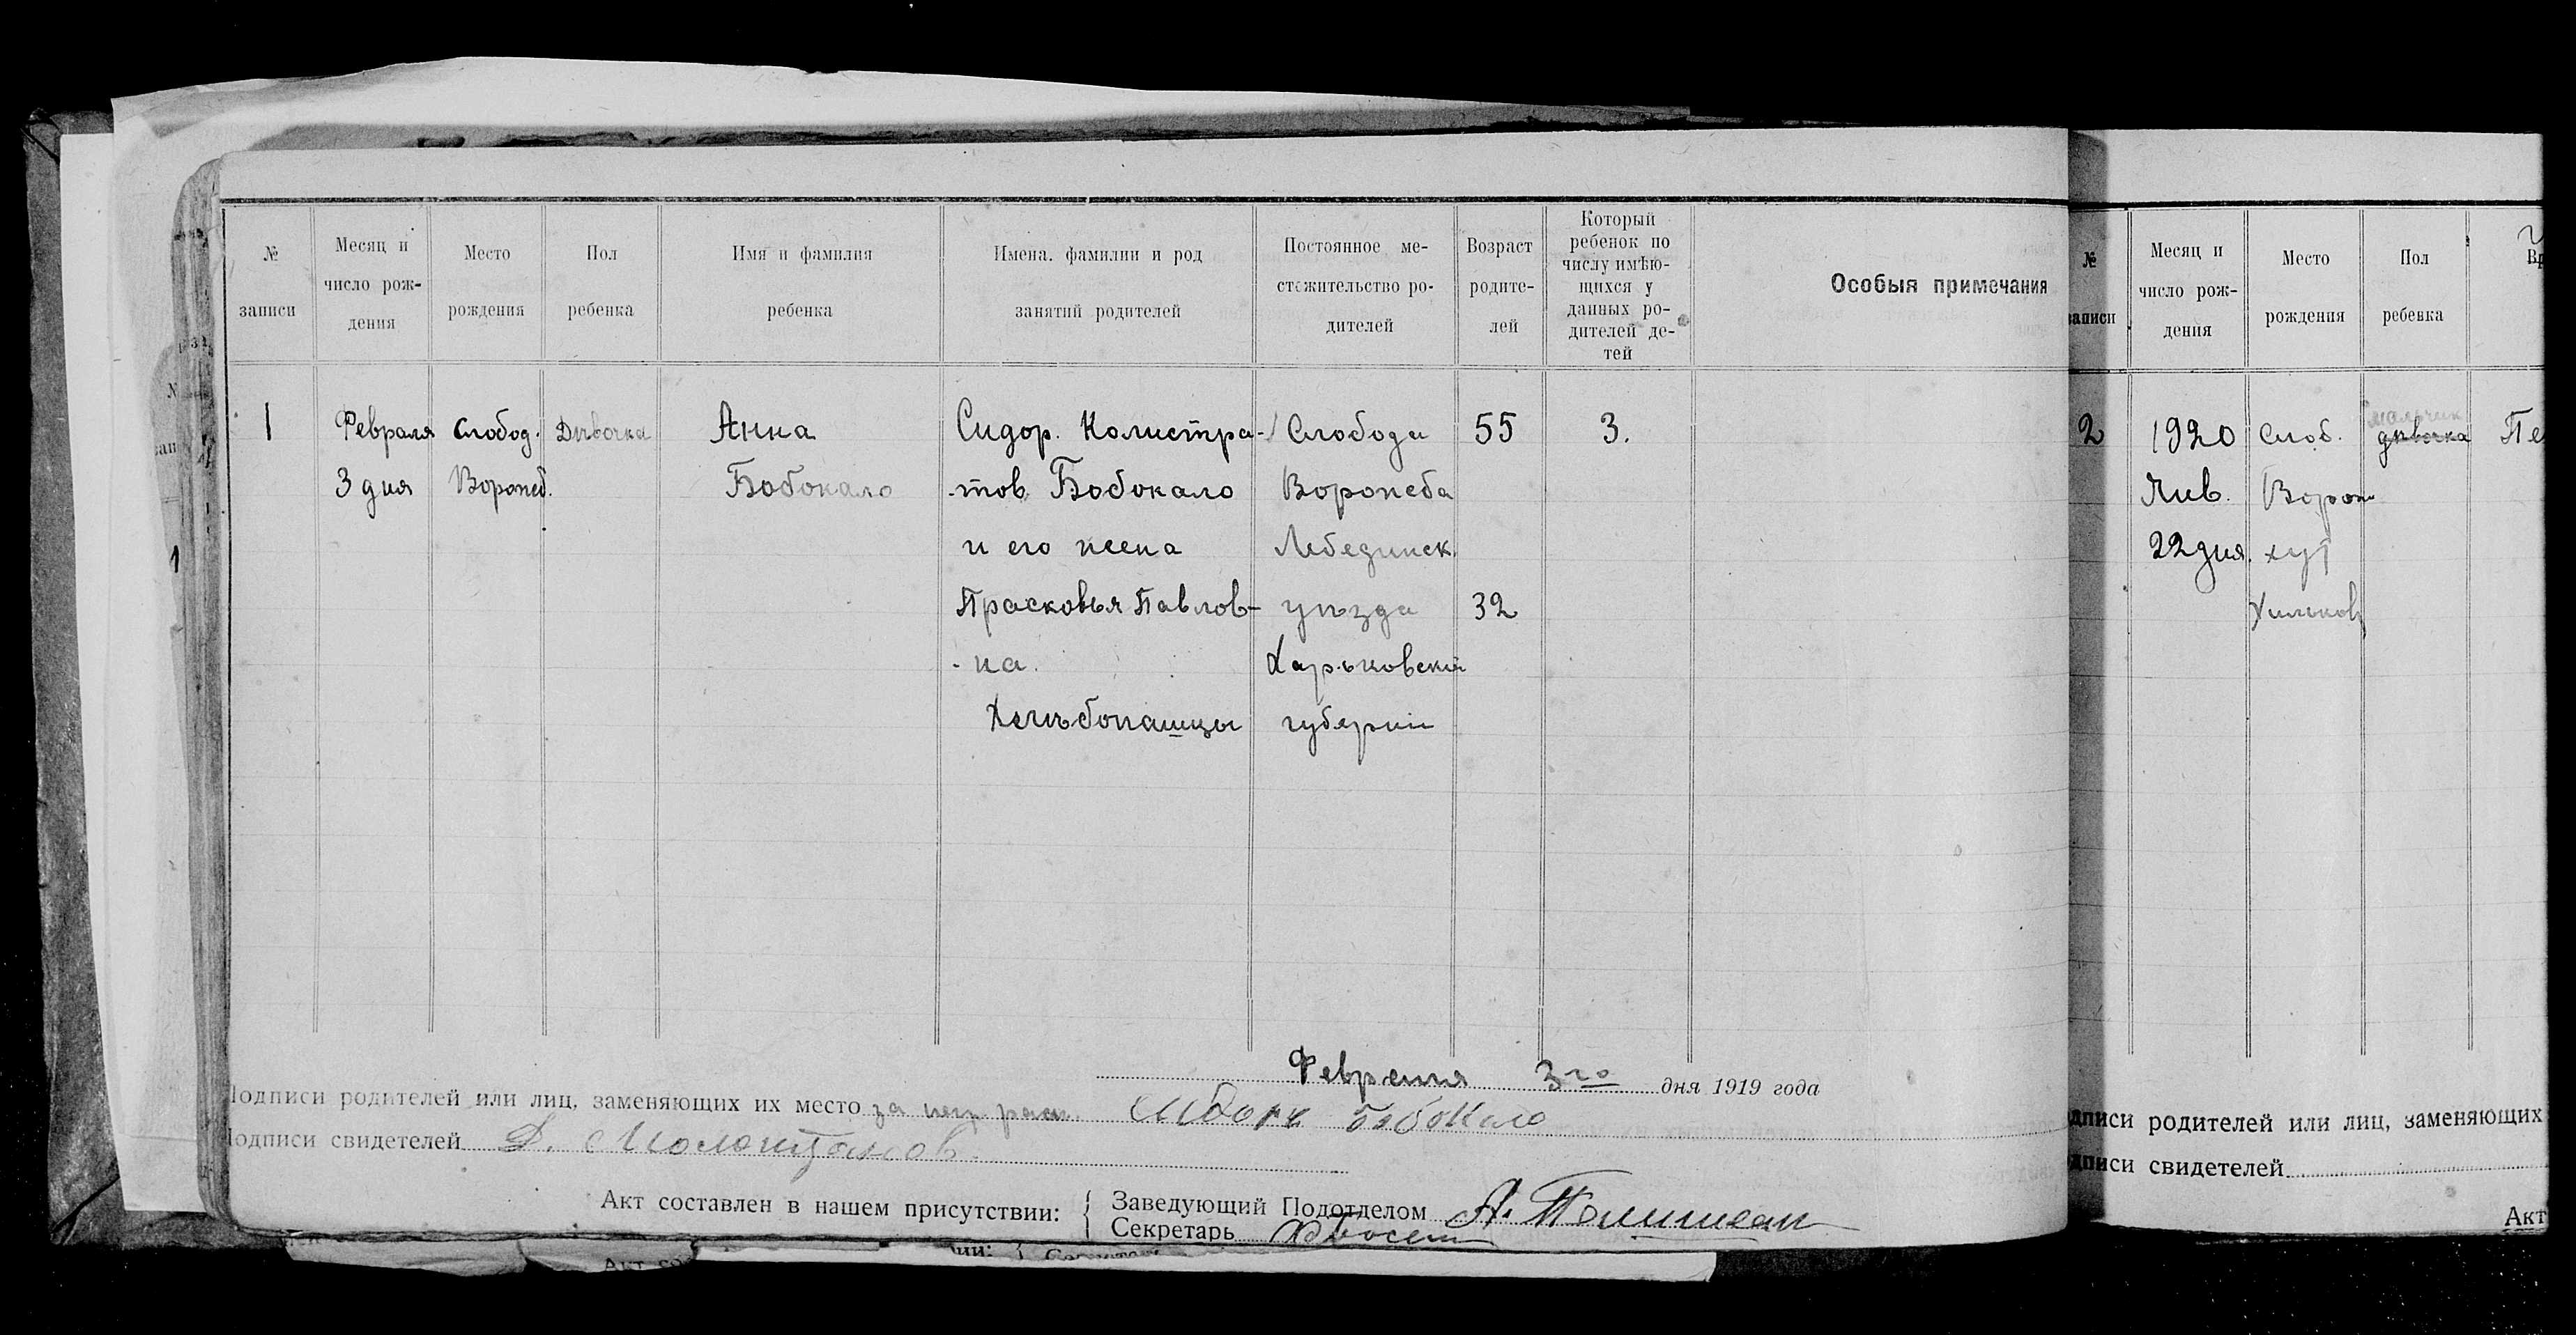 №
записи
Месяц и
число рож-
дения
Место
рождения
Пол
ребенка
Имя и фамилия
ребенка
Имена, фамилии и род
занятий родителей
Постоянное ме-
стожительство ро-
дителей
Возраст
родите-
лей
Который
ребенок по
числу имѣю-
щихся у
данных ро-
дителей де-
тей
Особыя примечания
1
Февраля
3 дня
Слобод.
Ворожеб.
Дѣвочка
Анна
Бобокало
Сидор. Калистра-
-тов Бобокало
и его жена
Прасковья Павлов-
-на.
Хлѣбопашцы
Слобода
Ворожеба
Лебединск.
уѣзда
Харьковской
губернии
55
32
3.
Февраля 3го дня 1919 года
Подписи родителей или лиц, заменяющих их место за негр Сидоръ Бобокало
Подписи свидетелей Д.
Акт составлен в нашем присутствии:
Заведующий Подотделом А.
Секретарь
№
записи
Месяц и
число рож-
дения
Место
рождения
Пол
ребенка
2
1920
Янв.
22 дня.
Слоб.
Ворож
хут
Хильков
мальчик
дѣвочка
Пе
подписи родителей или лиц, заменяющих
подписи свидетелей
Акт